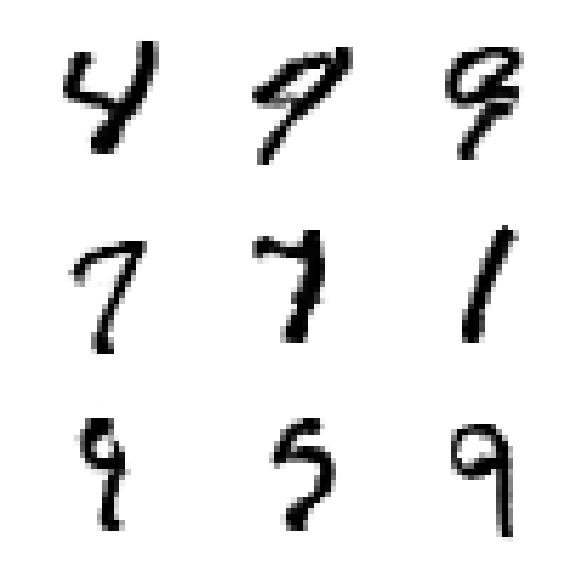 4 9 9
7 7 1
9 5 9